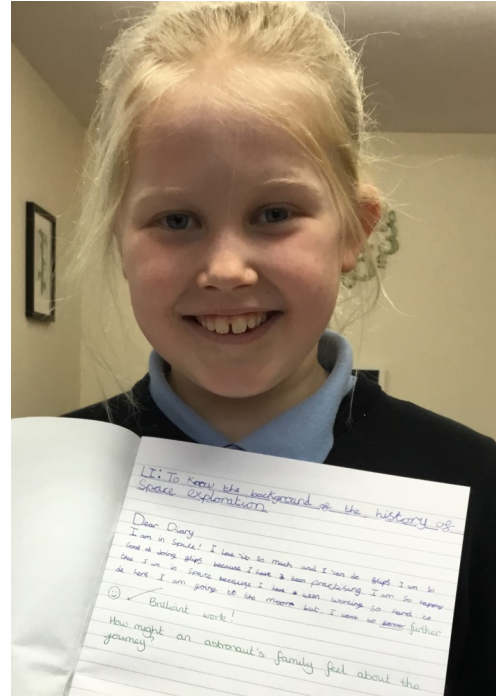 LI: To know the background of the history of
Space exploration
Dear Diary
I am in Space! I love it so much and I can do flips I am so
Good at doing flips because I have been practising. I am so happy
that I am in Space because I have been working so hard to
be here I am going to the moon but I want to go further
Brilliant work!
How might an astronaut's family feel about the
journey?